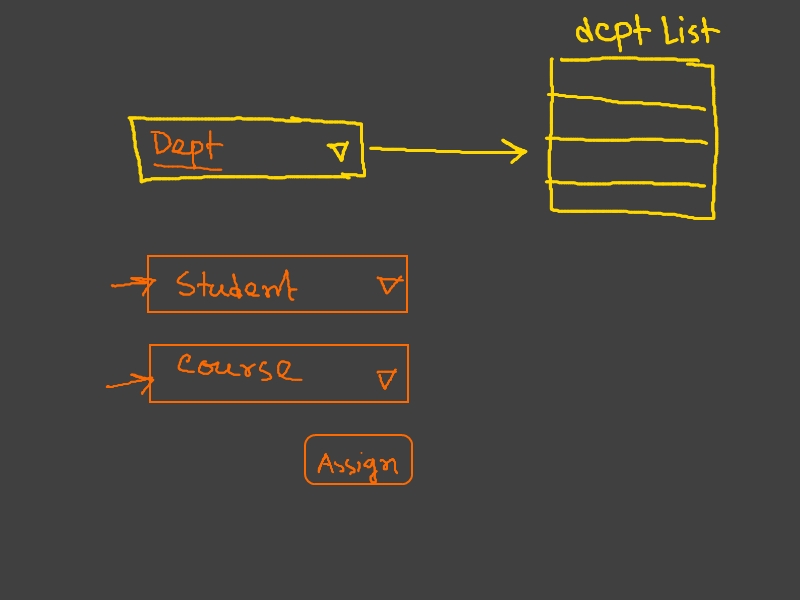 dept List
Dept
Student
Course
Assign